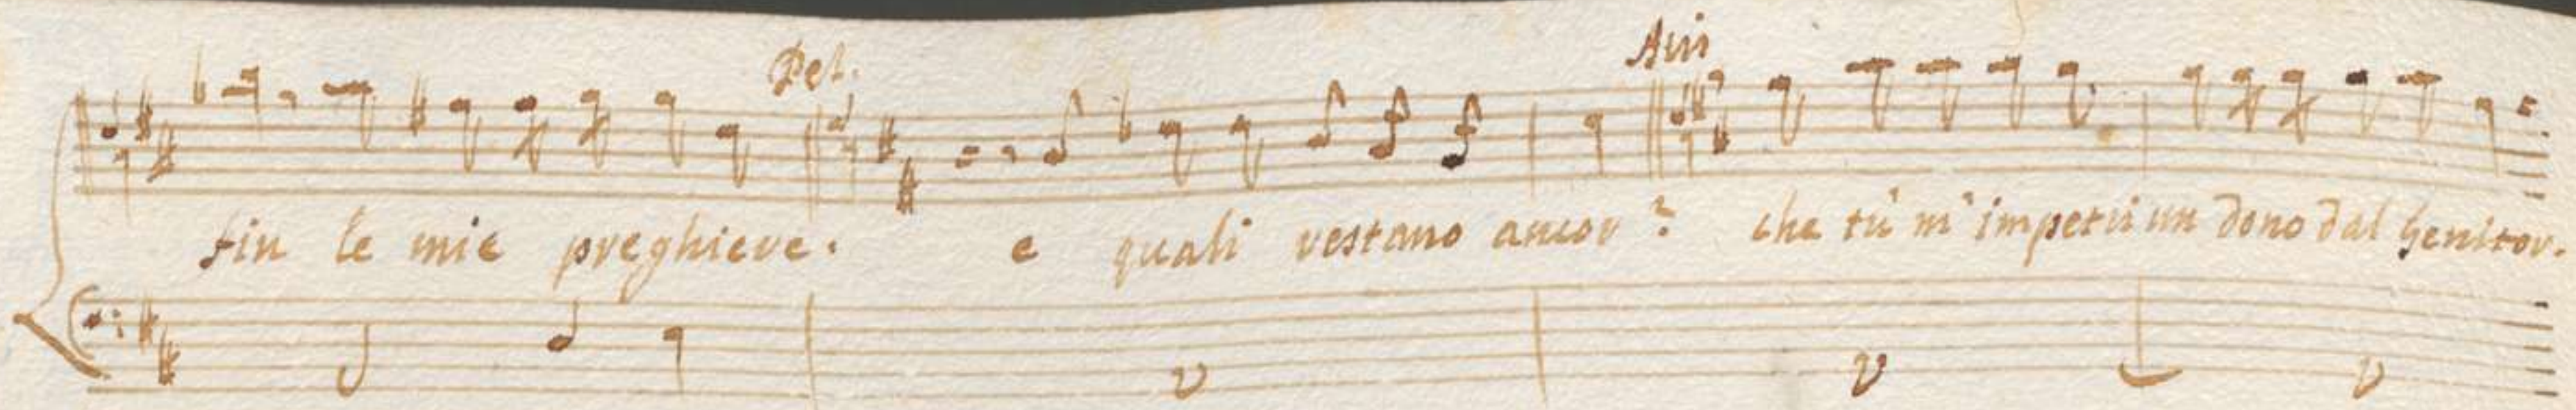 Pel. Aui
fin le mie preghiere. e quali restano ancor? che tù m'impetri un dono dal Genitor.